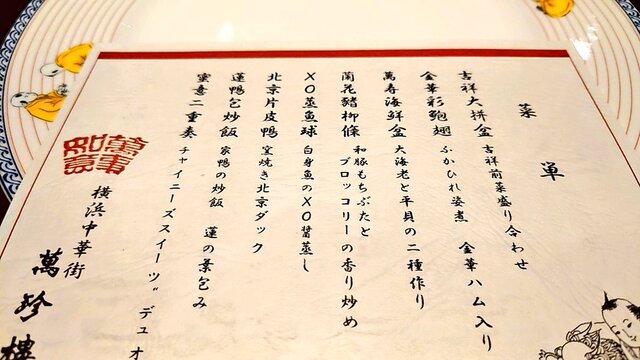 菜単
吉祥大拼盆 吉祥前菜盛り合わせ
金華彩鮑翅 ふかひれ姿煮 金華ハム入り
萬寿海鮮盆 大海老と平貝の二種作り
蘭花豬柳條 和豚もちぶたと
ブロッコリーの香り炒め
XO蒸魚球 白身魚のXO醤蒸し
北京片皮鴨 窯焼き北京ダック
蓮鴨包炒飯 家鴨の炒飯 蓮の葉包み
蜜意二重奏 チャイニーズスイーツ〝デュオ
萬事如意
横浜中華街
萬珍樓